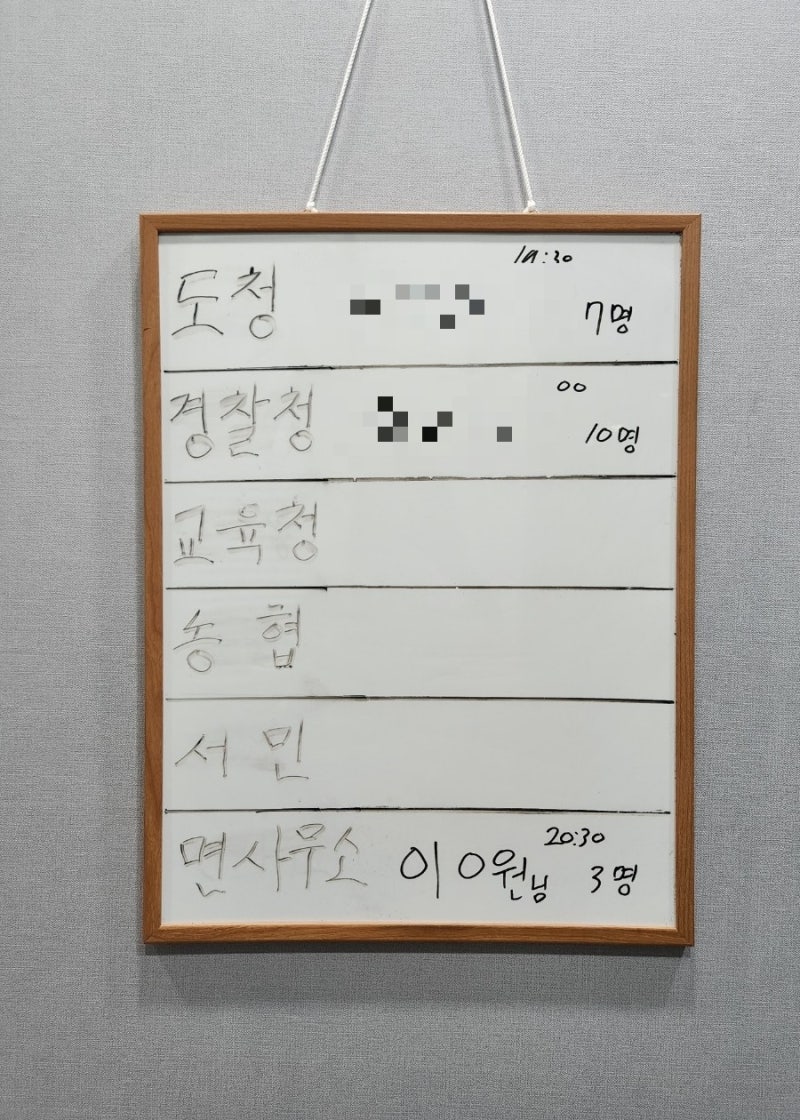 도청 7명
경찰청 00 10명
교육청
농 협
서 민
면사무소 이O원님 20:30 3명